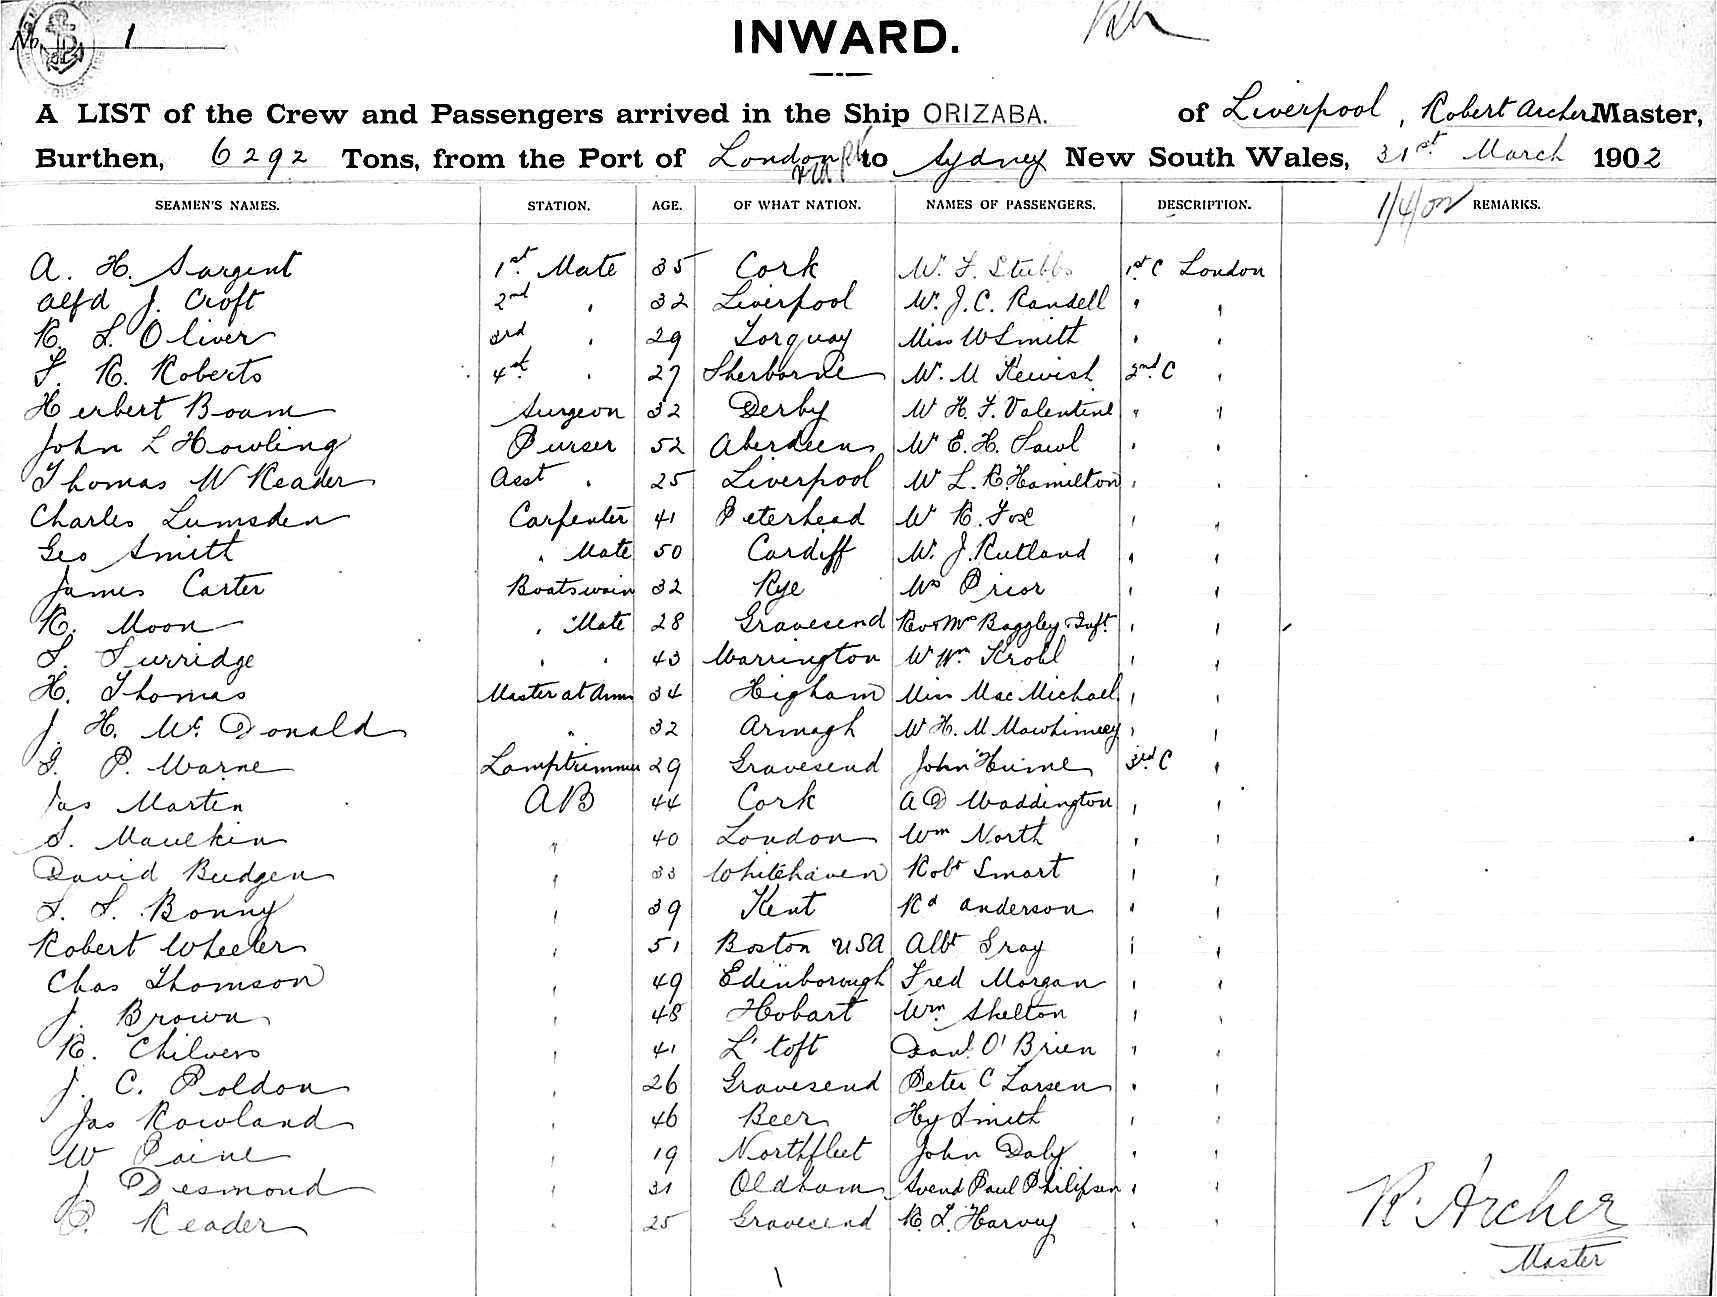 No. 1
INWARD.
A LIST of the Crew and Passengers arrived in the Ship ORIZABA. of Liverpool, Robert Archer Master,
Burthen, 6292 Tons, from the Port of London to Sydney New South Wales, 31st March 1902
SEAMEN'S NAMES. STATION. AGE. OF WHAT NATION. NAMES OF PASSENGERS. DESCRIPTION. 1/4/02 REMARKS.
A. H. Sargent 1st Mate 35 Cork Mr. F. Stubbs 1st C London
Alfd J. Croft 2nd " 32 Liverpool Mr. J. C. Randell " "
R. L. Oliver 3rd " 29 Torquay Miss W Smith " "
F. R. Roberts 4th " 27 Sherborne Mr. M Kewish 2nd C "
Herbert Boam Surgeon 32 Derby Mr H. F. Valentine " "
John L Howling Purser 52 Aberdeen Mr E. H. Sawl " "
Thomas W Reader Asst " 25 Liverpool Mr L. R Hamilton " "
Charles Lumsden Carpenter 41 Peterhead Mr R. Fox " "
Geo Smith " Mate 50 Cardiff Mr. J. Rutland " "
James Carter Boatswain 32 Rye Mrs Prior " "
R. Moon " Mate 28 Gravesend Rev & Mrs Baggley & Inft. " "
S. Surridge " " 43 Warrington Mr Wm Krohl " "
H. Thomas Master at Arms 34 Higham Miss MacMichael " "
J. H. Mc Donald " 32 Armagh Mr H. M Mawhinney " "
G. P. Warne Lamptrimmer 29 Gravesend John Hume 3rd C "
Jas Martin AB 44 Cork A D Waddington " "
S. Maulkin " 40 London Wm North " "
David Budgen " 33 Whitehaven Robt Smart " "
S. S. Bonny " 39 Kent Rd Anderson " "
Robert Wheeler " 51 Boston USA Albt Gray " "
Chas Thomson " 49 Edinborough Fred Morgan " "
J. Brown " 48 Hobart Wm Skelton " "
R. Chilvers " 41 L' toft Danl. O'Brien " "
J. C. Poldon " 26 Gravesend Peter C Larsen " "
Jas Rowland " 46 Beer Hy Smith " "
W Paine " 19 Northfleet John Daly " "
J Desmond " 31 Oldham Svend Paul Philipsen " "
P. Reader " 25 Gravesend R. L. Harvey " "
R. Archer
Master